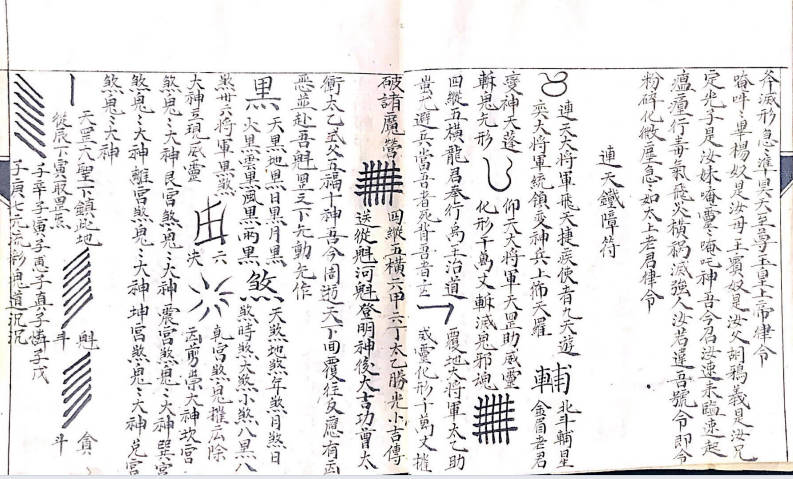 斧滅形急準昊天至尊玉皇上帝律令
唵吽畢楊奴是汝母王霸奴是汝父詞鴉義是汝兄
定光子是汝妹唵囕唵吒神吾今召汝速來臨速起
瘟㾮行毒氣飛火橫禍滅強人汝若違吾號令即令
粉碎化微塵急急如太上老君律令
連天鐵障符
連天大將軍飛天捷疾使者九天遊
奕大將軍統領變神兵上佈天羅
輔
北斗輔星
金眉老君
變神天蓬
仰六大將軍天罡助威靈
斬鬼无形
化形千萬丈斬滅鬼邪魂
四縱五橫龍君奉行萬王治道
覆地大將軍太乙助
蚩尤避兵當吾者死背吾者亡
威靈化形千萬丈摧
破諸魔營
四縱五橫六甲六丁太乙勝光小吉傳
送從魁河魁登明神後大吉功曹太
衝太乙武父五福十神吾今周遊天下回覆往反應有凶
惡並赴吾魁罡之下先動先作
黑
天黑地黑日黑月黑
火黑雲黑風黑雨黑
煞
天煞地煞年煞月煞日
煞時煞大煞小煞八黑八
煞卅六將軍黑煞
大神豆現威靈
六
天
乾宮煞鬼摧
煞鬼大神艮宮煞鬼大神震宮煞鬼大神巽宮
煞鬼大神離宮煞鬼大神坤宮煞鬼大神兌宮
煞鬼大神
天罡六聖下鎮此地
從辰下寅最黑煞
魁
斗
貪
斗
子辛子寅子惠子真子